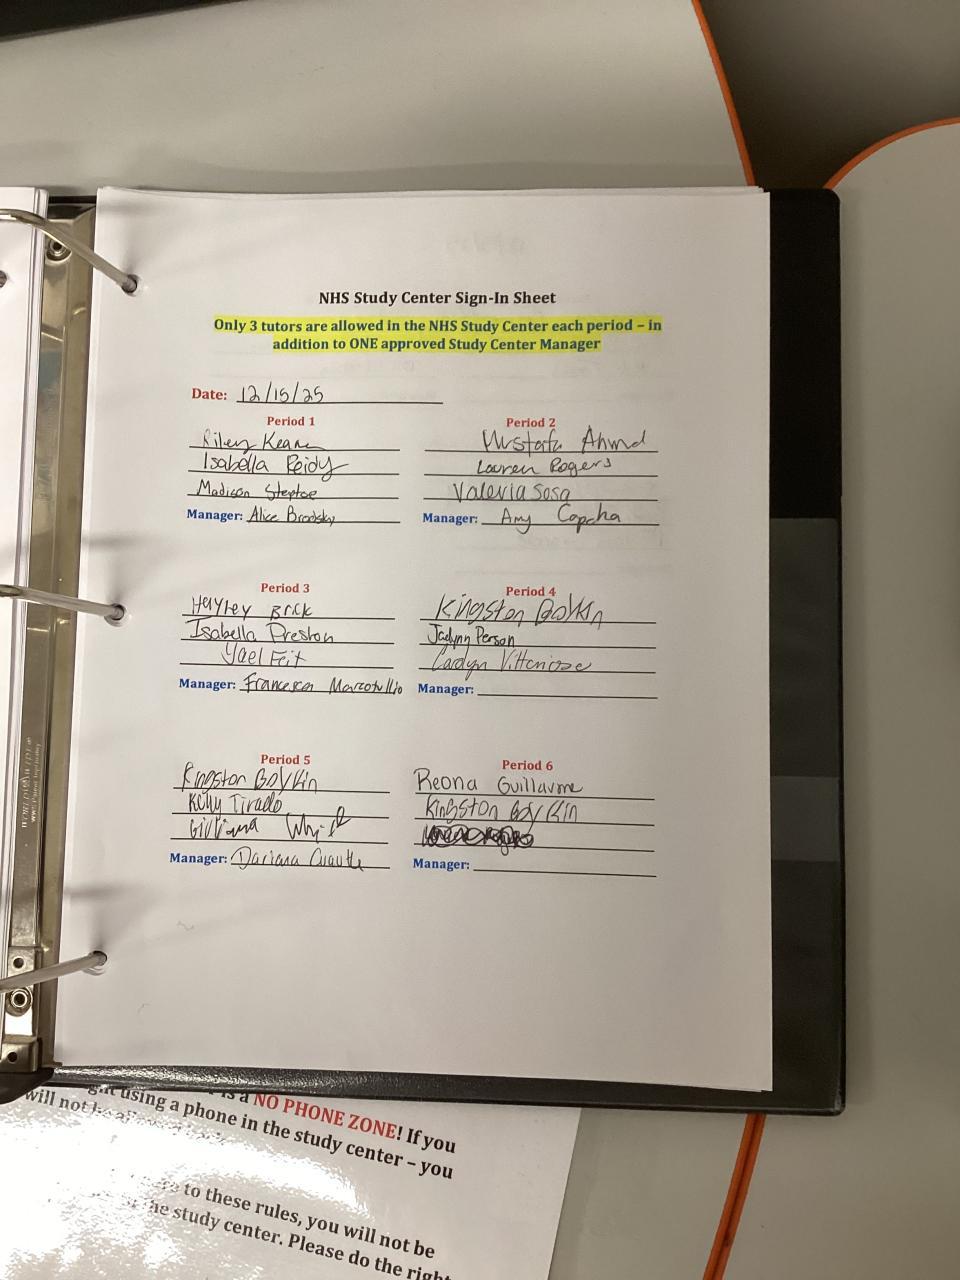 NHS Study Center Sign-In Sheet
Only 3 tutors are allowed in the NHS Study Center each period – in
addition to ONE approved Study Center Manager
Date: 12/15/25
Period 1
Riley Keane
Isabella Reidy
Madison Steptoe
Manager: Alice Brodsky
Period 2
Mustafa Ahmd
Lauren Rogers
Valeria Sosa
Manager: Amy Copcha
Period 3
Hayley Brick
Isabella Preston
Yael Feit
Manager: Francesca Marcotullio
Period 4
Kingston Boykin
Jadynn Person
Carolyn
Manager:
Period 5
Kingston Boykin
Kelly Tirado
Giuliana White
Manager: Dariana Cuautle
Period 6
Reona Guillaume
Kingston Boykin
Manager:
is a NO PHONE ZONE! If you
using a phone in the study center – you
will not be
to these rules, you will not be
the study center. Please do the right